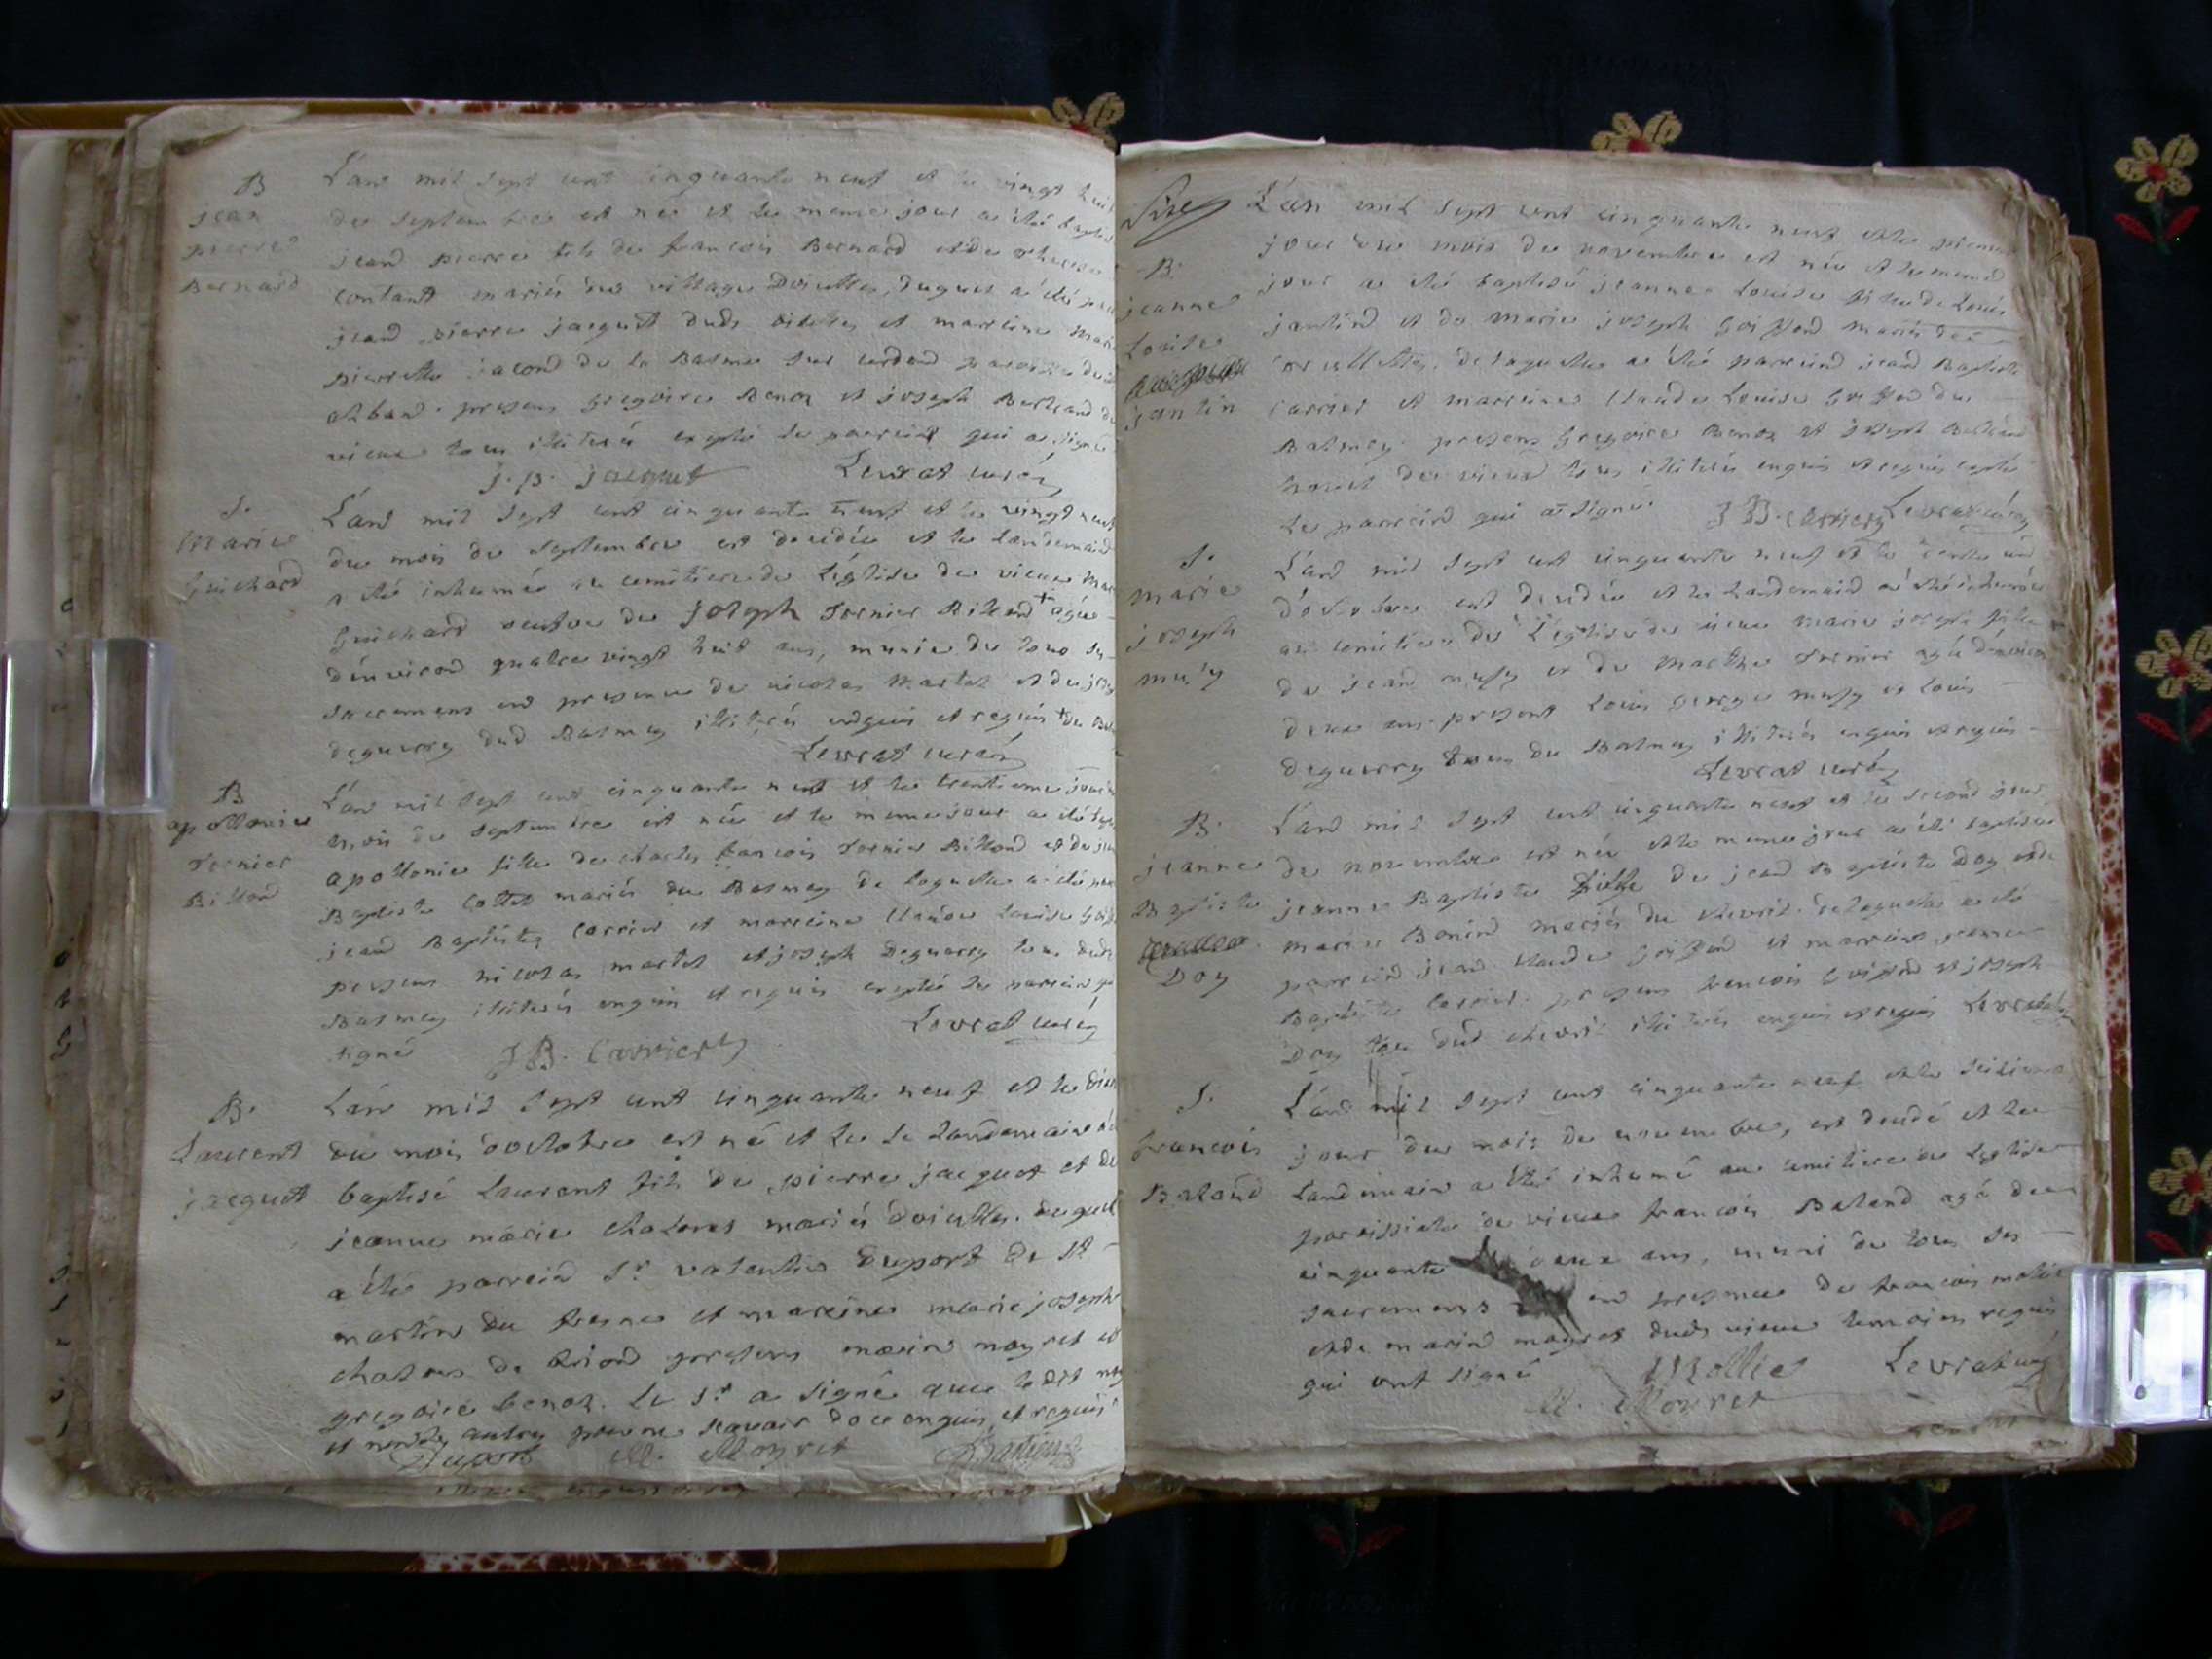 B
jean
pierre
Bernard
L'an mil sept cent cinquante neuf et le vingt huit
de septembre est né et le meme jour a été baptisé
jean pierre fils de francois Bernard et de therese
contant mariés du village doiselles, duquel a été
jean pierre jacquet dud
pierrette jacond de la Balme sur cerdon paroisse de
present gregoire Benoz et joseph Bertrand de
vieux tous illiterés excepté le parrein qui a signé
j. p. jacquet Levrat curé
S.
Marie
Guichard
L'an mil sept cent cinquante neuf et le vingt neuf
du mois de septembre est decedée et le landemain
a été inhumée au cemitiere de l'église de vieux Marie
Guichard veufve de joseph Tornier Billiond + agée
d'environ quatre vingt huit ans, munie de tous ses
sacremens en presence de nicolas Martel et de joseph
deguerry dud Balmey illiterés enquis et requis + du Bal
Levrat curé
B
apollonie
Tornier
Billiond
L'an mil sept cent cinquante neuf et le trentieme jour du
mois de septembre est née et le meme jour a été bap
apollonie fille de charles francois Tornier Billiond et de jean
Baptiste Cottet mariés du Balmey de laquelle a été par
jean Baptiste Carrier et marreine Claudine Louise
presens nicolas martel et joseph Deguerry tous dud
Balmey illiterés enquis et requis excepté le parrein qui
signé J B. Carrier Levrat curé
B.
Laurent
jacquet
L'an mil sept cent cinquante neuf et le dix
du mois d'octobre est né et le landemain a été
baptisé Laurent fils de pierre jacquet et de
jeanne marie Chatones mariés doiselles. duquel
a été parrein Sr valentin Duport de St
martin du fresne et marreine marie josephe
de Briond presens marin moyret et
gregoire benoz. le Sr a signé avec ledit moy
et non les autres pour ne scavoir de ce enquis et requis
Duport M. Moyret
B.
jeanne
Louise
jantin
L'an mil sept cent cinquante neuf et le premier
jour du mois de novembre est née et le meme
jour a été baptisé jeanne Louise fille de Louis
jantind et de Marie joseph Goiffond mariés de
de laquelle a été parreind jean Baptiste
Carrier et marreine Claude Louise Goiffon du
Balmey. presens gregoire Benoz et joseph Bertrand
de vieux tous illiterés enquis et requis excepté
le parreind qui a signé J B. Carrier Levrat curé
S.
Marie
joseph
mu'y
L'an mil sept cent cinquante neuf et le trente un
d'octobre est decedée et le landemain a été inhumée
au cemitiere de l'église de vieux marie joseph fille
de jean mussy et de Marthe Tornier agée d'environ
deux ans. present Louis george mussy et Louis
deguerry tous du Balmey illiterés enquis et requis
Levrat curé
B.
jeanne
Baptiste
Doy
L'an mil sept cent cinquante neuf et le second jour
de novembre est née et le meme jour a été baptisée
jeanne Baptiste fille de jean Baptiste Doy et de
Marie Bonind mariés du chevril. de laquelle a été
parreind jean claude Goiffond et marreine jeanne
Baptiste Carrier. presens francois Goiffond et joseph
Doy dud chevril illiterés enquis et requis Levrat curé
S.
francois
Baland
L'an mil sept cent cinquante neuf et le seizieme
jour du mois de novembre, est decedé et le
landemain a été inhumé au cemitiere de l'église
paroissiale de vieux francois Baland agé de
cinquante deux ans, muni de tous ses
sacremens en presence de francois molie
et de marin moyret dud vieux temoins requis
qui ont signé Mollie Levrat curé
M. Moyret